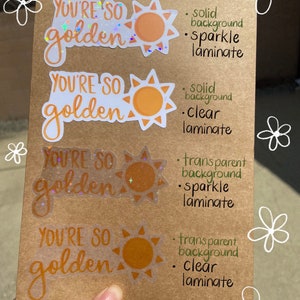 YOU'RE SO
golden
• solid
background
• sparkle
laminate
YOU'RE SO
golden
• solid
background
• clear
laminate
YOU'RE SO
golden
• transparent
background
• sparkle
laminate
YOU'RE SO
golden
• transparent
background
• clear
laminate